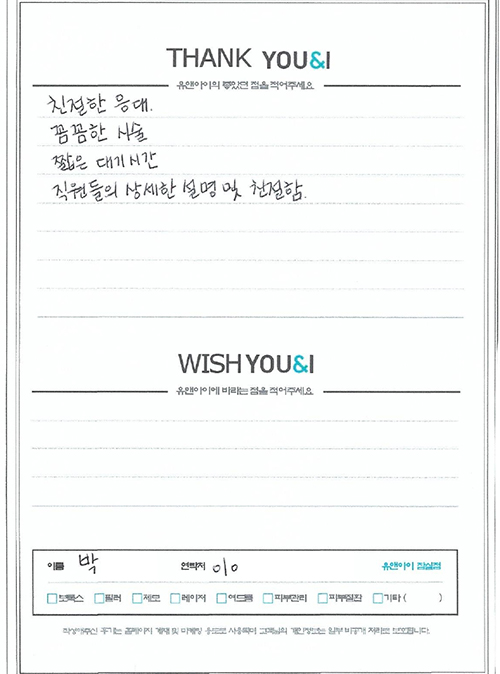 THANK YOU&I
유앤아이의 좋았던 점을 적어주세요
친절한 응대.
꼼꼼한 시술
짧은 대기시간
직원들의 상세한 설명 및 친절함.
WISH YOU&I
유앤아이에 바라는 점을 적어주세요
이름 박 연락처 010 유앤아이 잠실점
보톡스 필러 제모 레이저 여드름 피부관리 피부질환 기타 ( )
작성해주신 후기는 홈페이지 게재 및 마케팅 용도로 사용되며 고객님의 개인정보는 일부 비공개 처리로 보호됩니다.